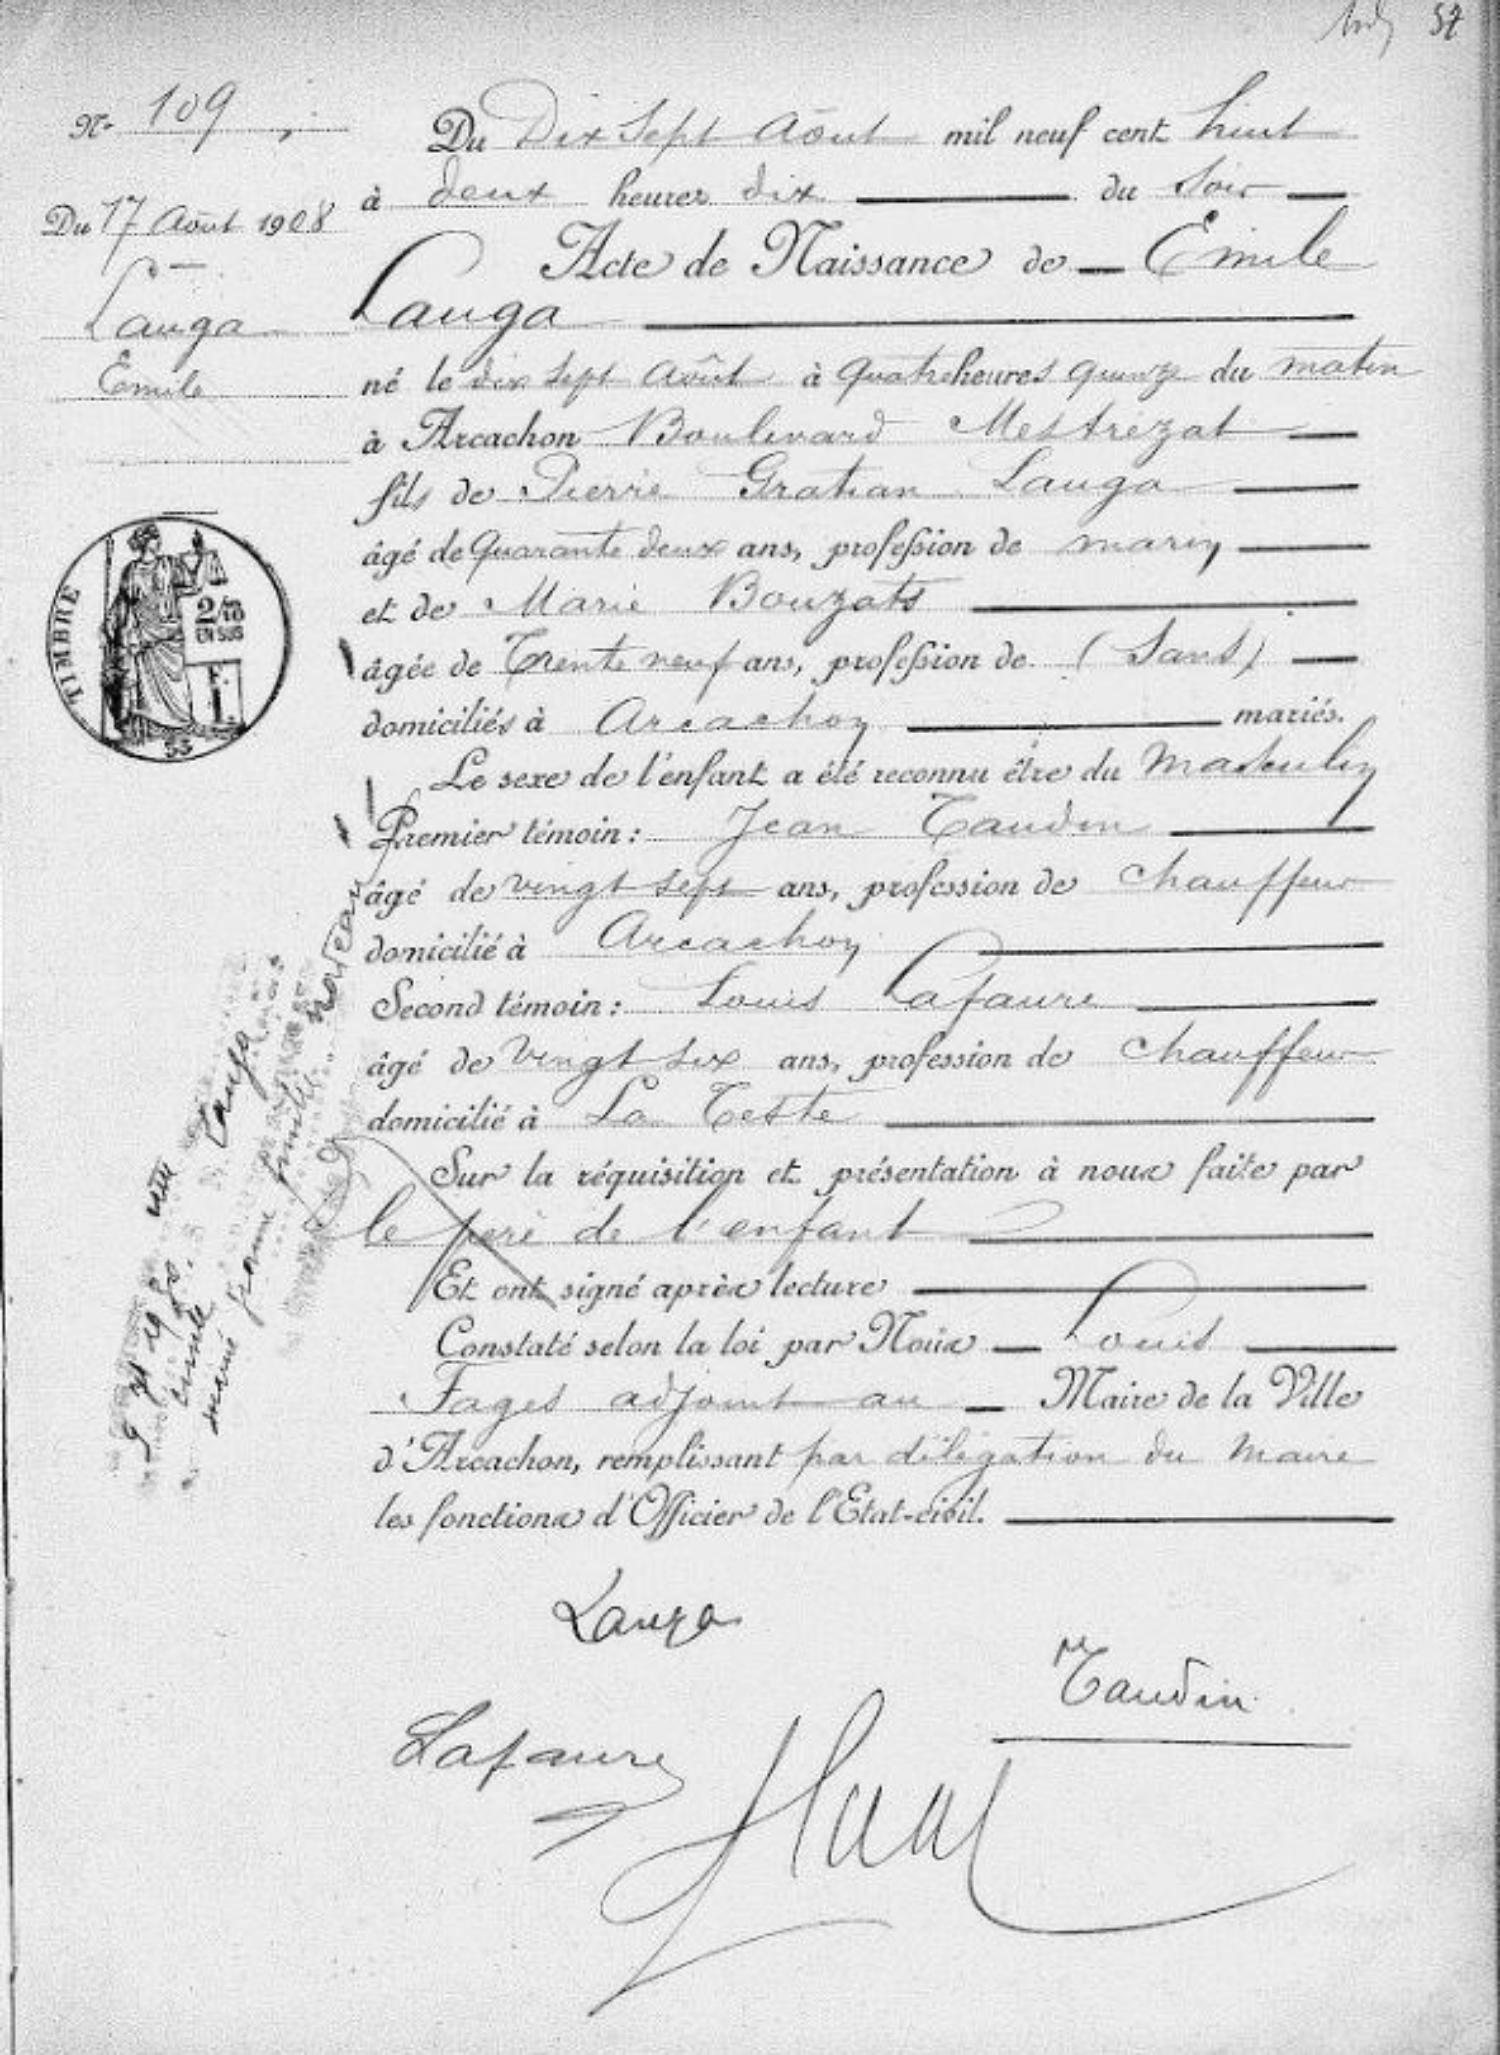 57
No 109
Du 17 Août 1908
Lauga
Emile
TIMBRE
2/10
EN SUS
Du Dix Sept Août mil neuf cent huit
à deux heures dix du Soir
Acte de Naissance de Emile
Lauga
né le dix sept Août à quatre heures quinze du matin
à Arcachon Boulevard Mestrézat
fils de Pierre Gratian Lauga
âgé de quarante deux ans, profession de marin
et de Marie Bouzats
âgée de Trente neuf ans, profession de (Sans)
domiciliés à Arcachon mariés.
Le sexe de l'enfant a été reconnu être du Masculin
Premier témoin : Jean Taudin
âgé de vingt sept ans, profession de chauffeur
domicilié à Arcachon
Second témoin : Louis Lafaure
âgé de vingt six ans, profession de chauffeur
domicilié à La Teste
Sur la réquisition et présentation à nous faite par
le père de l'enfant
Et ont signé après lecture
Constaté selon la loi par Nous Louis
Fages adjoint au Maire de la Ville
d'Arcachon, remplissant par délégation du Maire
les fonctions d'Officier de l'Etat-civil.
Lauga
Taudin
Lafaure